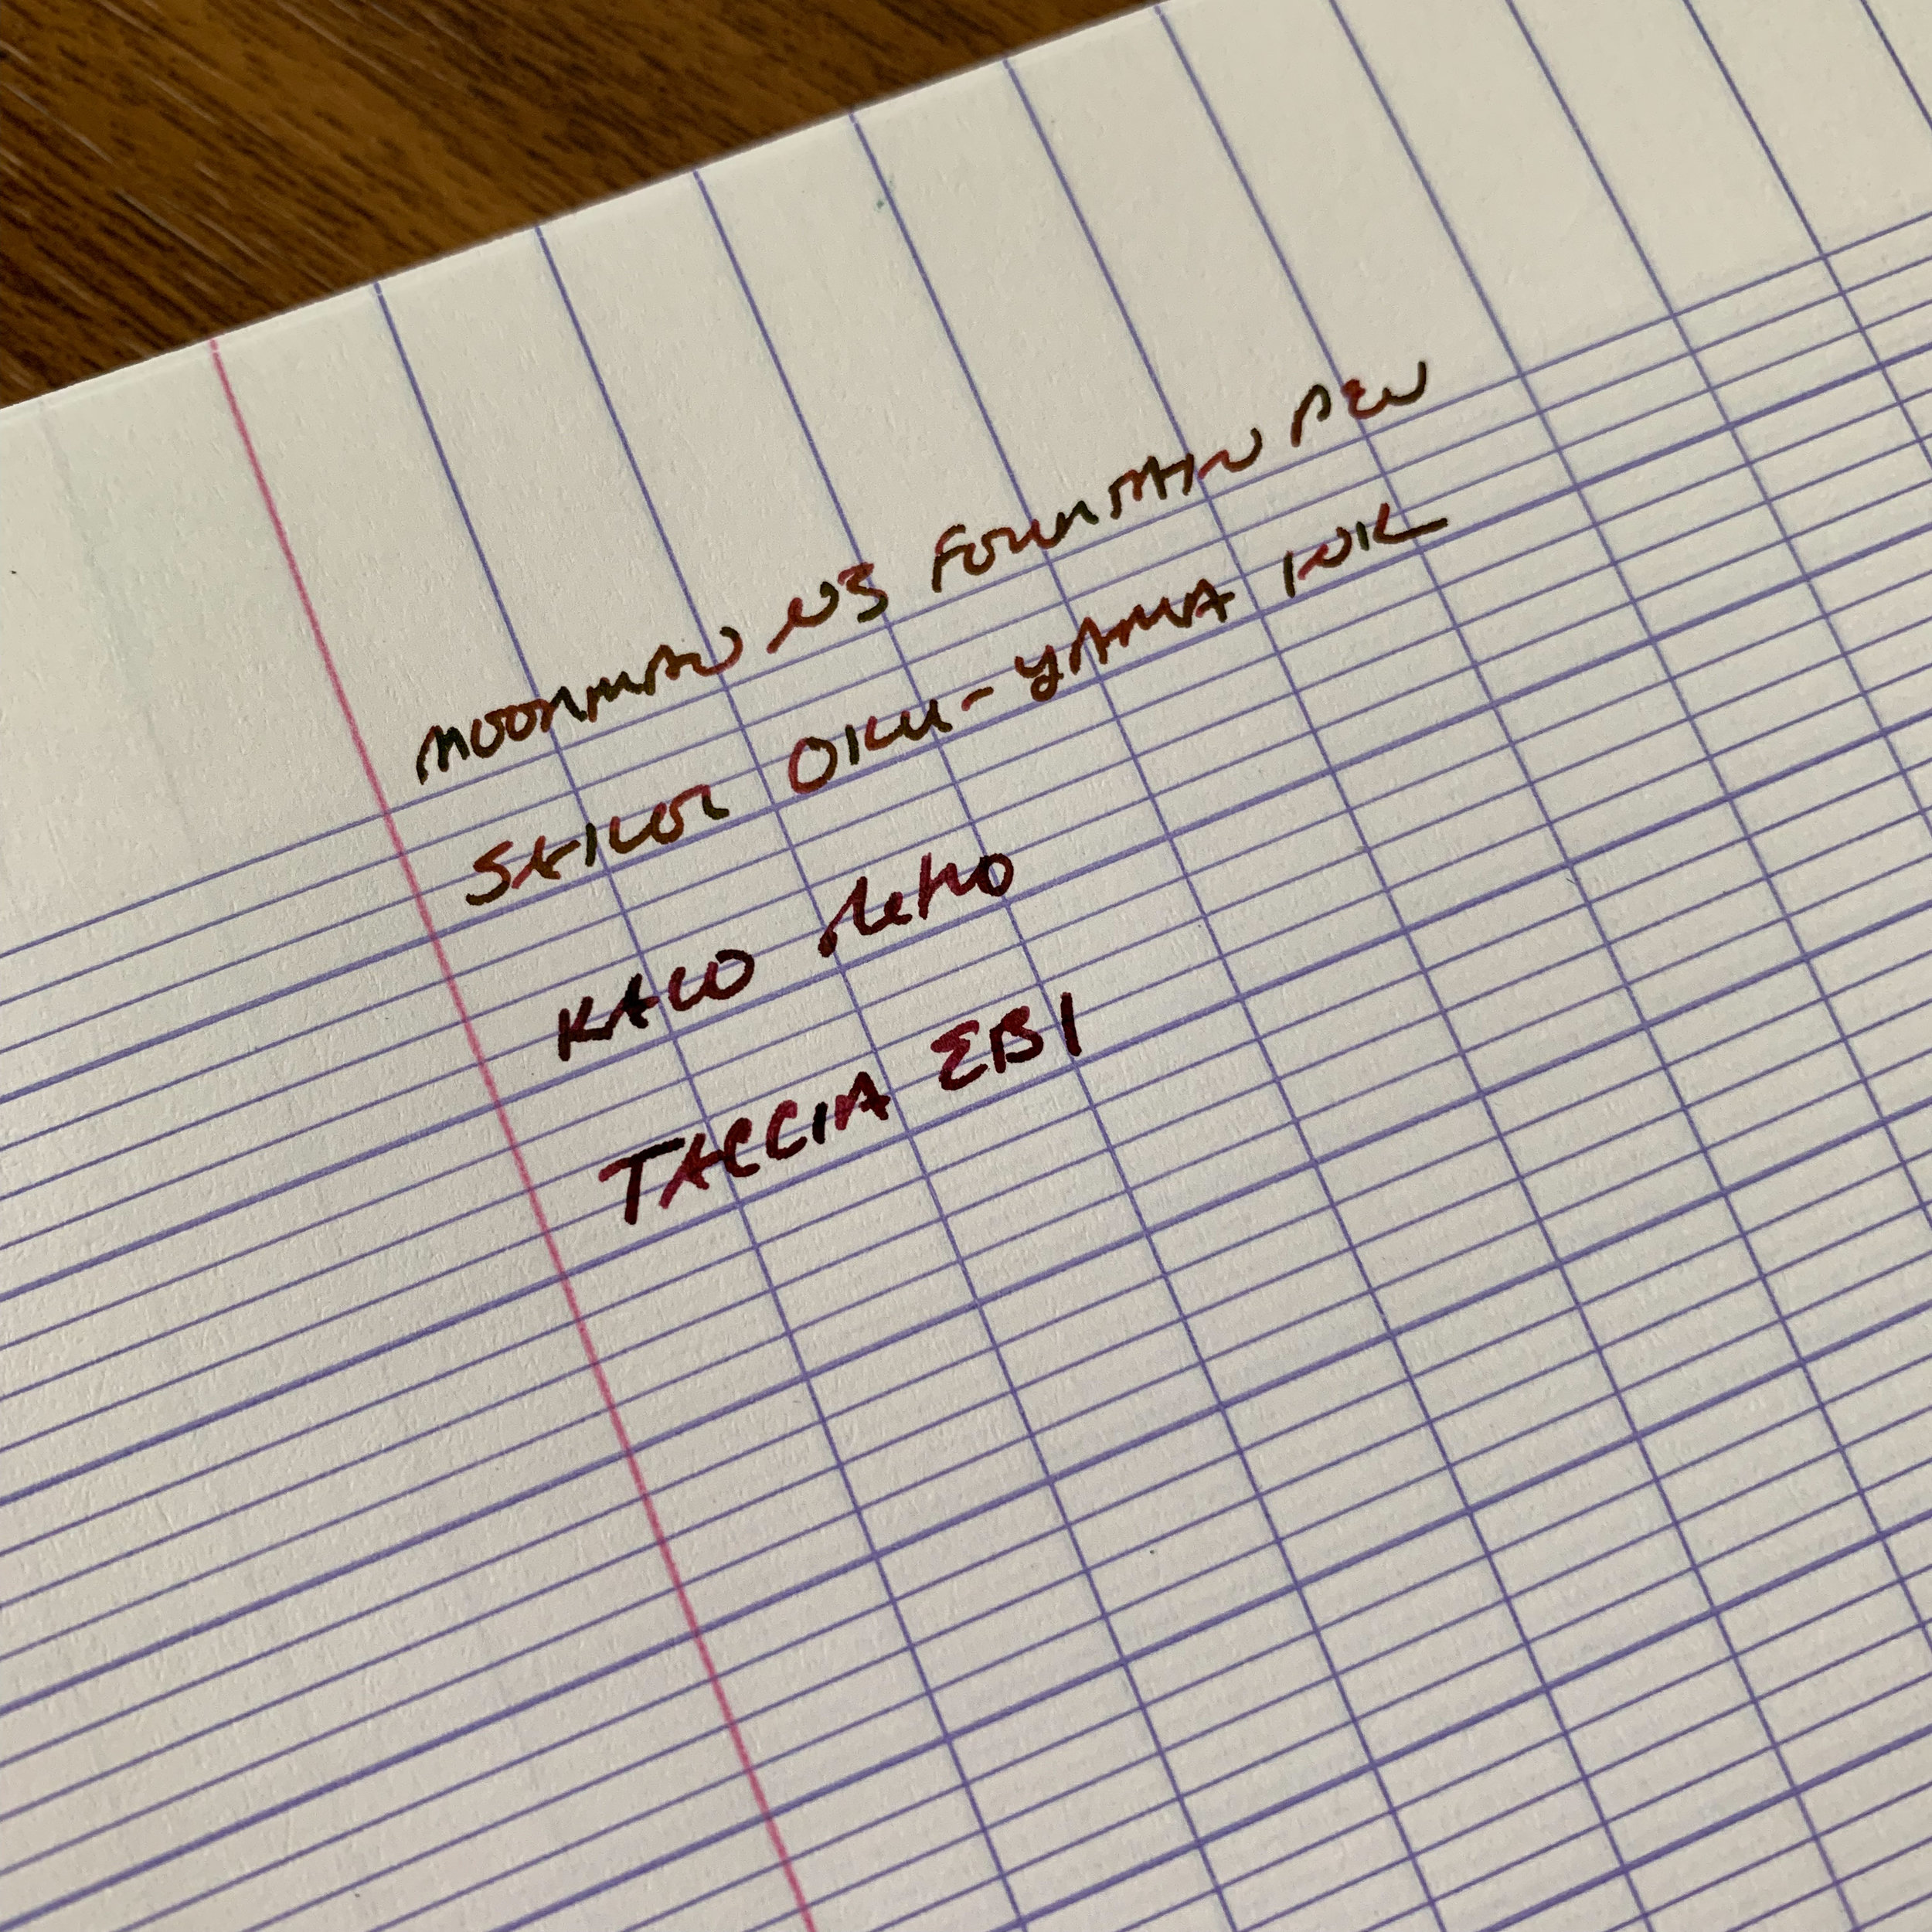 MOONMAN N3 FOUNTAIN PEN
SAILOR OKU-YAMA INK
KACO RETRO
TACCIA EBI